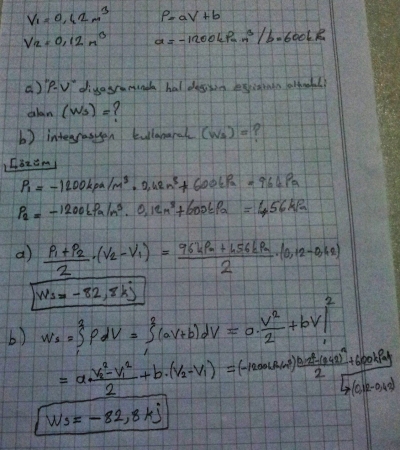 V1=0,42m³ P=aV+b
V2=0,12m³ a=-1200kPa m³/b=600kPa
a) "P-V" diyagramında hal değişim eğrisinin altındaki
alan (Ws)=?
b) integrasyon kullanarak (Ws)=?
Çözüm
P1=-1200kpa/m³.0,42m³+600kPa=96kPa
P2=-1200kPa/m³.0,12m³+600kPa=456kPa
a) P1+P2/2.(V2-V1)=96kPa+456kPa/2.(0,12-0,42)
Ws=-82,8kj
b) Ws=∫₁²PdV=∫₁²(aV+b)dV=a.V²/2+bV|₁²
=a.V2²-V1²/2+b.(V2-V1)=(-1200kPa/m³)(0,12²-(0,42)²)/2+600kPa
↳(0,12-0,42)
Ws=-82,8kj